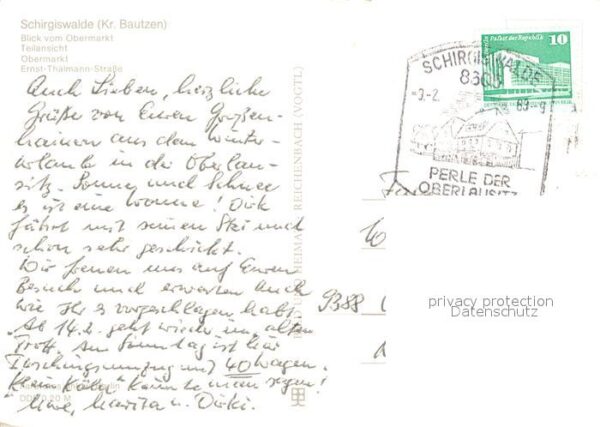 Schirgiswalde (Kr. Bautzen)
Blick vom Obermarkt
Teilansicht
Obermarkt
Ernst-Thälmann-Straße
Euch Lieben, herzliche
Grüße von Euren Großen-
hainern aus dem Winter-
urlaub in der Oberlau-
sitz. Sonne und Schnee
es ist eine Wonne! Dirk
fährt mit seinen Ski auch
schon sehr geschickt.
Wir freuen uns auf Euren
Besuch und erwarten Euch
wie Ihr es vorgeschlagen habt.
Ab 14.2. geht wieder im alten
Trott. Am Sonntag ist hier
Faschingsumzug mit 40 Wagen.
"Klein Köln" kann man sagen!
Uwe, Marita u. Dirk.
DDR 0,20 M
BILD UND HEIMAT REICHENBACH (VOGTL)
Palast der Republik
10
SCHIRGISWALDE
-9.-2.
83-9
PERLE DER
OBERLAUSITZ
9388
privacy protection
Datenschutz